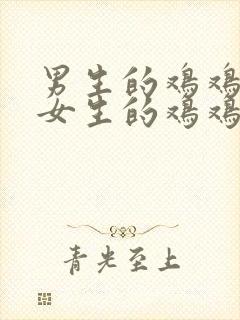 男生的鸡鸡
女生的鸡鸡
青光至上